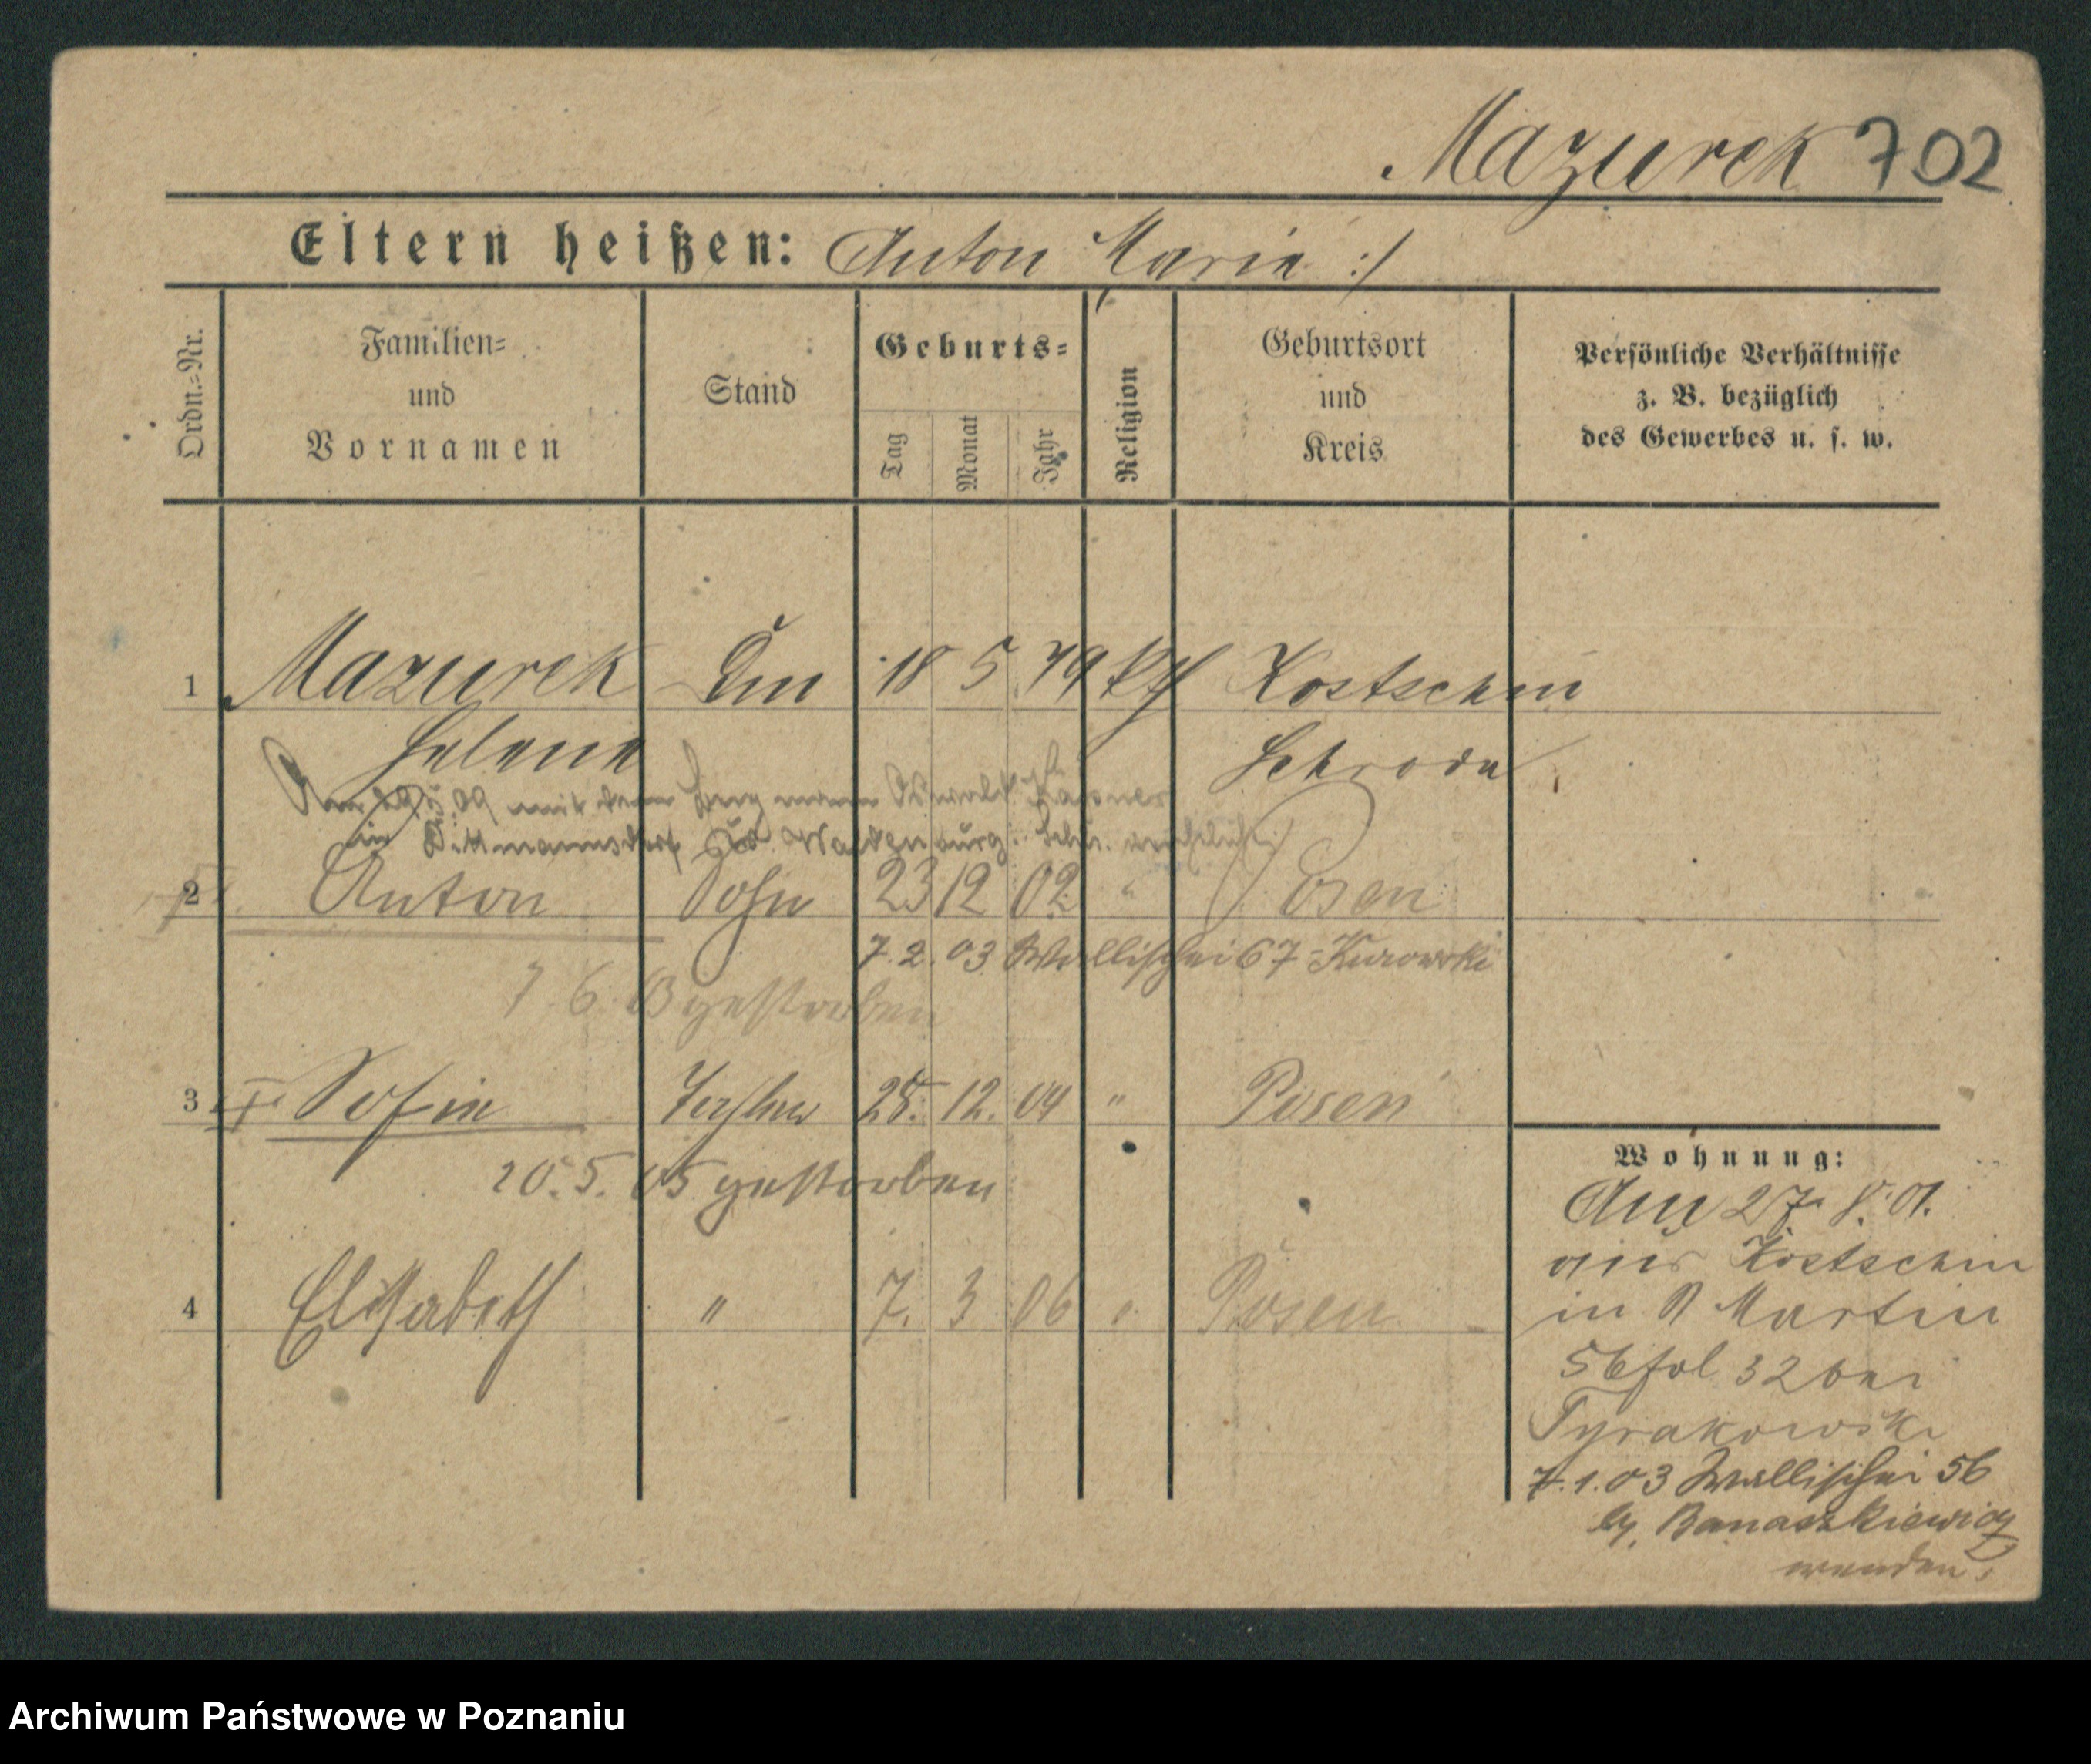 Mazurek 702
Eltern heißen: Anton Maria :/
Ordn.=Nr.
Familien=
und
Vornamen
Stand
Geburts=
Tag
Monat
Jahr
Religion
Geburtsort
und
Kreis
Persönliche Verhältnisse
z. B. bezüglich
des Gewerbes u. s. w.
1 Mazurek 18 5 79 kth Kostschin
Helena Schroda
09 mit dem Bergmann Oswald
in Dittmannsdorf Waldenburg
2 Anton Sohn 23 12 02 " Posen
7.2.03 Wallischei 67 Kurowski
7 6 03 gestorben
3 Sofia Tochter 28. 12. 04 " Posen
20.5.05 gestorben
4 Elisabeth " 7. 3 06 " Posen
Wohnung:
27. 8. 01.
aus Kostschin
in St Martin
56 32 bei
Tyrakowski
7.1.03 Wallischei 56
by. Banaszkiewicz
wenden!
Archiwum Państwowe w Poznaniu